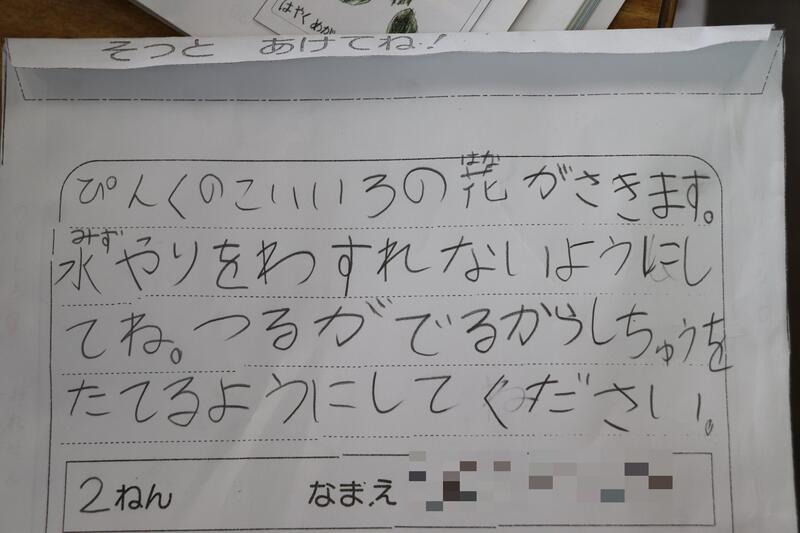 はやくめが
そっと あけてね！
ぴんくのこいいろの花がさきます。
はな
水やりをわすれないようにし
みず
てね。つるがでるからしちゅうを
たてるようにしてください。
2ねん なまえ